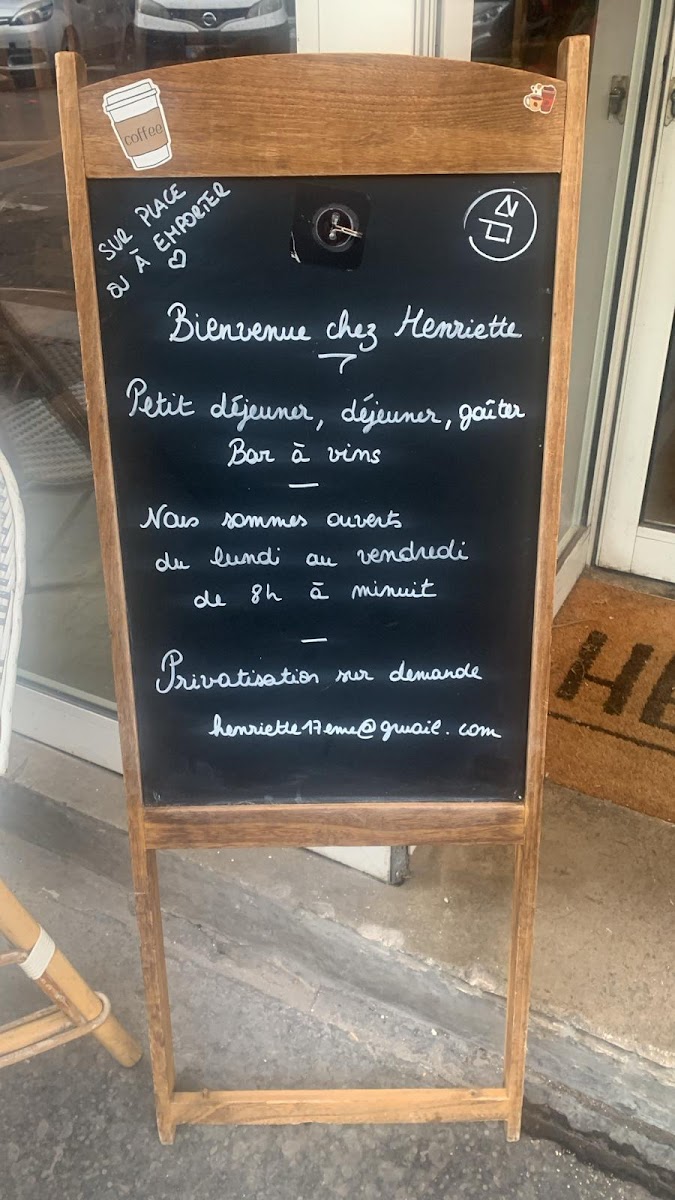 coffee
SUR PLACE
OU À EMPORTER
Bienvenue chez Henriette
Petit déjeuner, déjeuner, goûter
Bar à vins
Nous sommes ouverts
du lundi au vendredi
de 8h à minuit
Privatisation sur demande
henriette17eme@gmail.com
HE